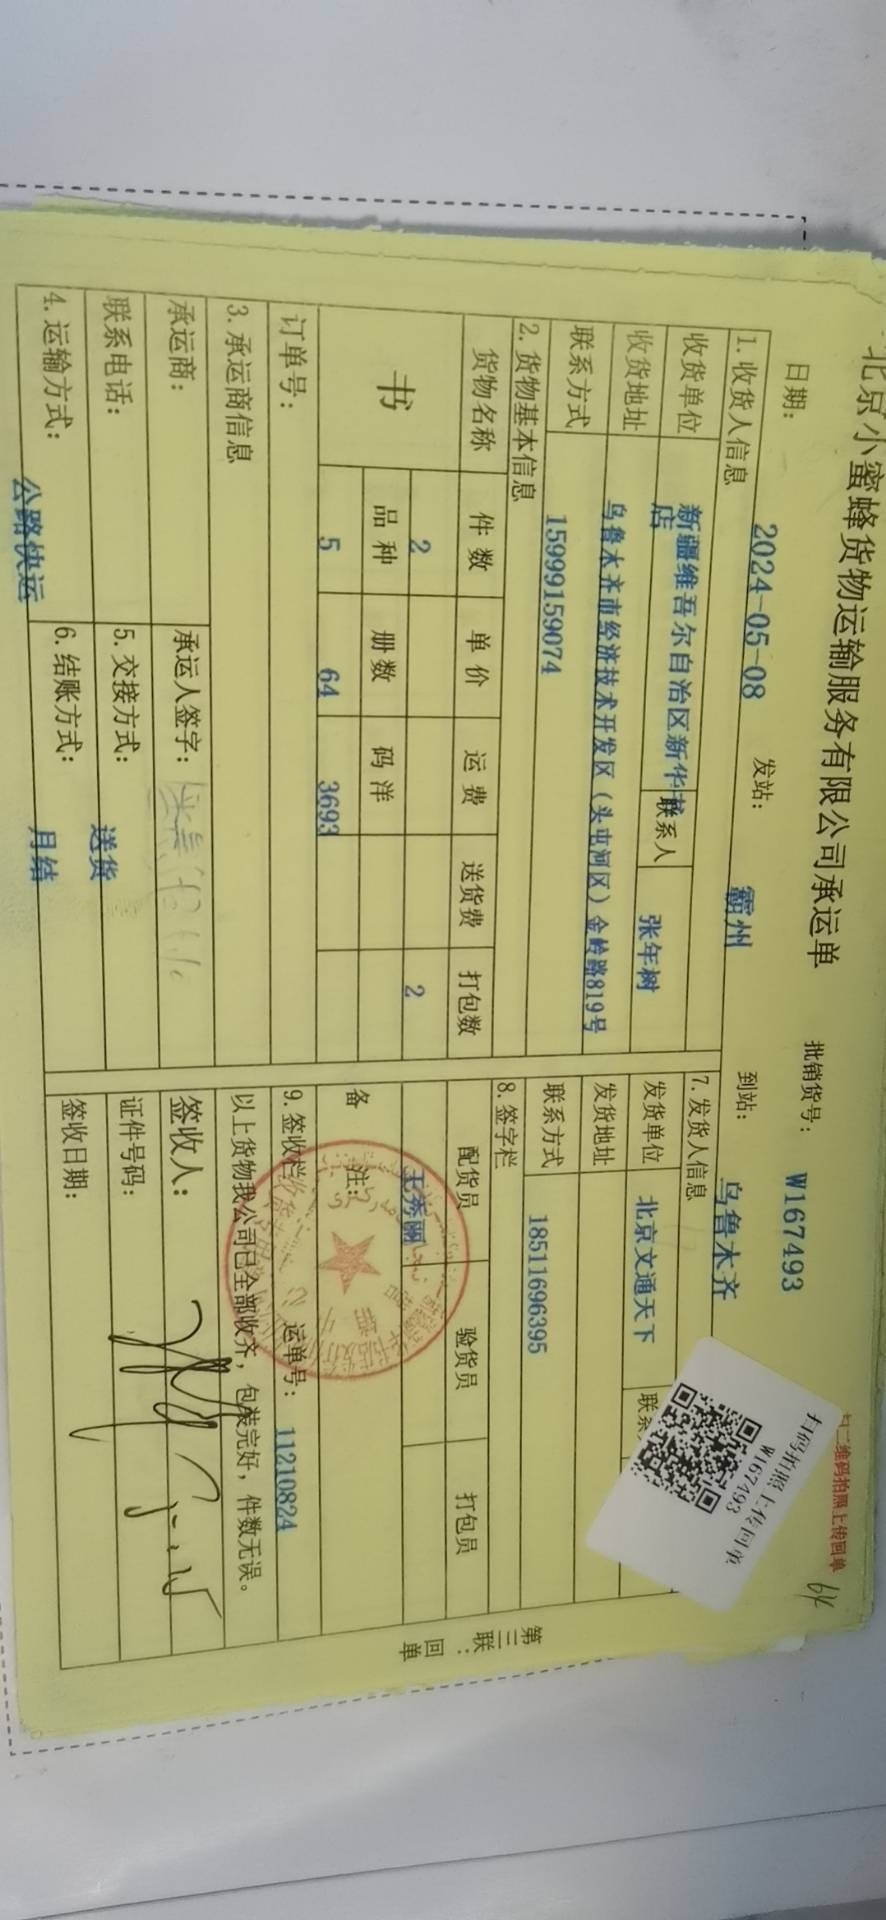 北京小蜜蜂货物运输服务有限公司承运单
扫二维码拍照上传回单
扫码拍照上传回单
W167493
批销货号： W167493
日期： 2024-05-08 发站： 霸州 到站： 乌鲁木齐
1. 收货人信息
收货单位 新疆维吾尔自治区新华书店 联系人 张年树
收货地址 乌鲁木齐市经济技术开发区（头屯河区）金岭路819号
联系方式 15999159074
2. 货物基本信息
货物名称 件数 单价 运费 送货费 打包数
书 2 2
品种 册数 码洋
5 64 3693
订单号：
3. 承运商信息
承运商： 承运人签字：
联系电话： 5. 交接方式： 送货
4. 运输方式： 公路快运 6. 结账方式： 月结
7. 发货人信息
发货单位 北京文通天下 联系
发货地址
联系方式 18511696395
8. 签字栏
配货员 验货员 打包员
王秀丽
备注：
9. 签收栏 运单号： 11210824
以上货物我公司已全部收齐，包装完好，件数无误。
签收人：
证件号码：
签收日期：
第三联：回单